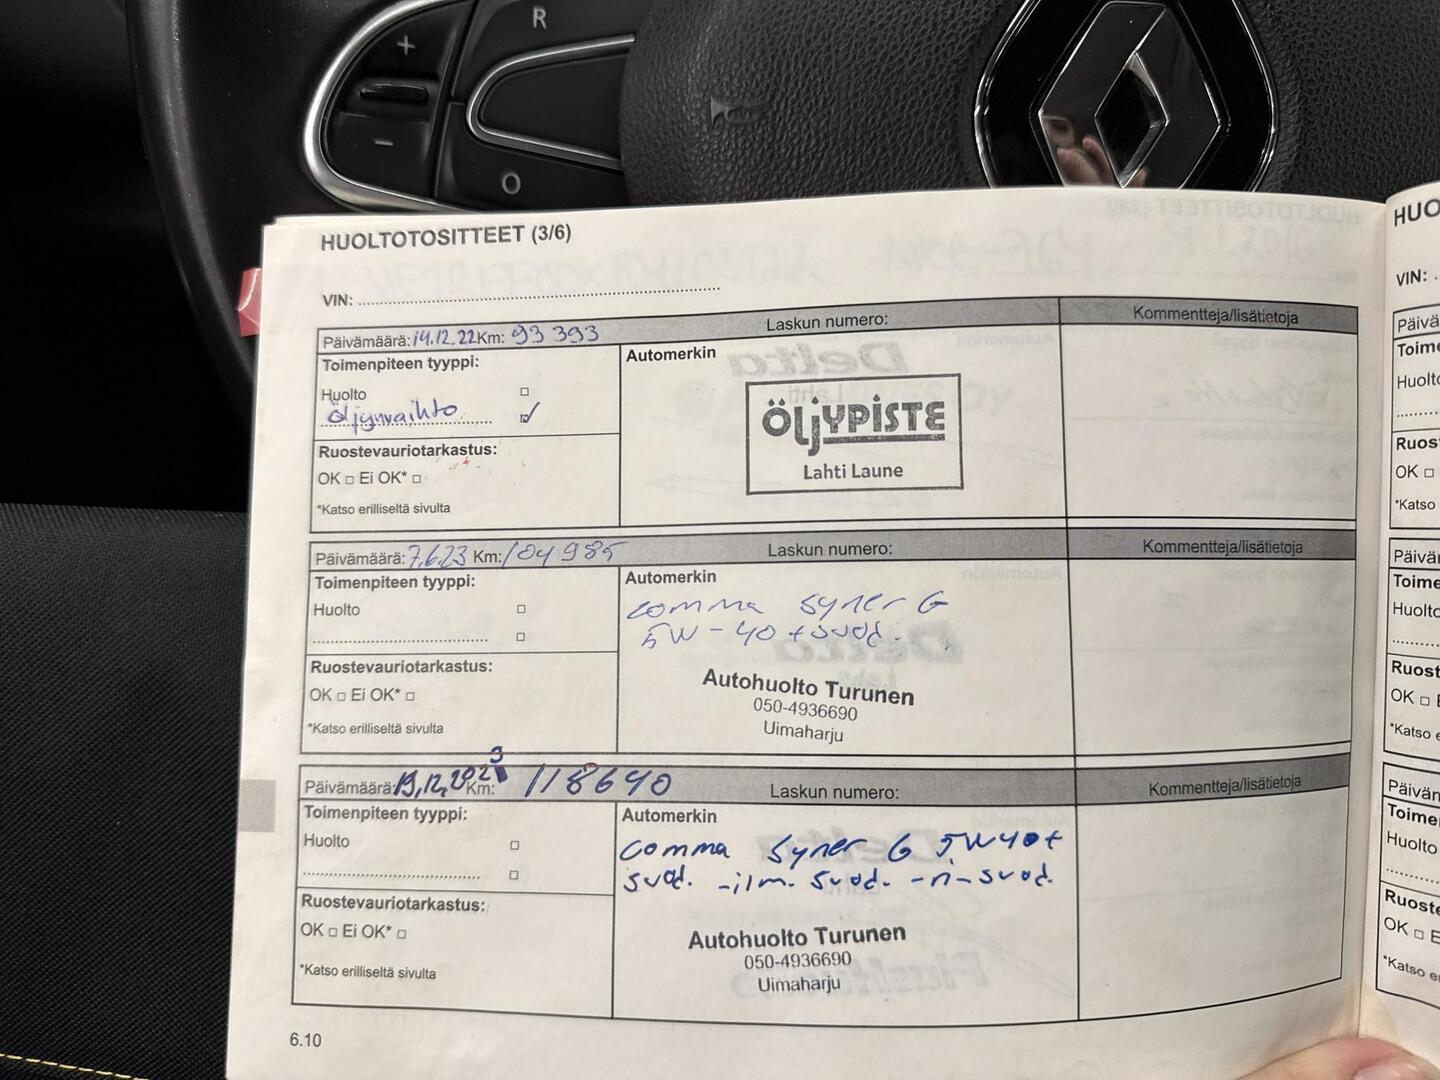 R
+
-
O
HUOLTOTOSITTEET (3/6)
VIN:
Päivämäärä: 14.12.22 Km: 93 393
Laskun numero:
Kommentteja/lisätietoja
Toimenpiteen tyyppi:
Huolto
Öljynvaihto
Ruostevauriotarkastus:
OK □ Ei OK* □
*Katso erilliseltä sivulta
Automerkin
ÖLJYPISTE
Lahti Laune
Päivämäärä: 7.6.23 Km: 104985
Laskun numero:
Kommentteja/lisätietoja
Toimenpiteen tyyppi:
Huolto
Ruostevauriotarkastus:
OK □ Ei OK* □
*Katso erilliseltä sivulta
Automerkin
comma Syner G
5W-40 + suod.
Autohuolto Turunen
050-4936690
Uimaharju
Päivämäärä: 19.12.2023 Km: 118640
Laskun numero:
Kommentteja/lisätietoja
Toimenpiteen tyyppi:
Huolto
Ruostevauriotarkastus:
OK □ Ei OK* □
*Katso erilliseltä sivulta
Automerkin
comma Syner G 5W40+
suod. -ilm. suod. -n-suod.
Autohuolto Turunen
050-4936690
Uimaharju
6.10
HUO
VIN:
Päivä
Toime
Huolto
Ruost
OK □
*Katso
Päivän
Toime
Huolto
Ruost
OK □ E
*Katso e
Päivän
Toime
Huolto
Ruoste
OK □ E
*Katso e